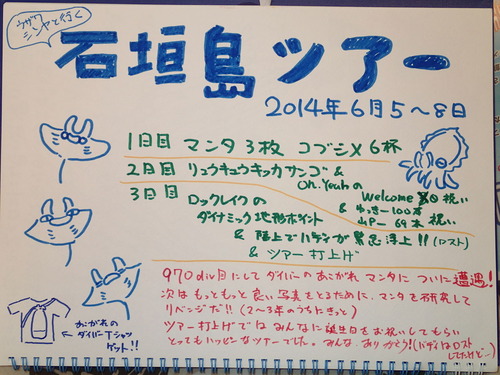 ウザワ
シンヤと行く
石垣島ツアー
2014年6月5〜8日
1日目 マンタ3枚 コブシメ6杯
2日目 リュウキュウキッカサンゴ &
Oh.Yeahの
Welcome 祝い
& 100本
69本 祝い
3日目 ロックレイクの
ダイナミック地形ポイント
& 陸上でハチゲンが緊急浮上!! (ロスト)
& ツアー打上げ
970div目にしてダイバーのあこがれ マンタに ついに遭遇!
次は もっともっと良い写真をとるために、マンタを研究して
リベンジだ!! (2〜3年のうちにきっと)
ツアー打上げでは みんなに誕生日をお祝いしてもらい
とってもハッピーなツアーでした。みんな、ありがとう! (バディはロスト
してたけど…)
あこがれの
ダイバーTシャツ
ゲット!!